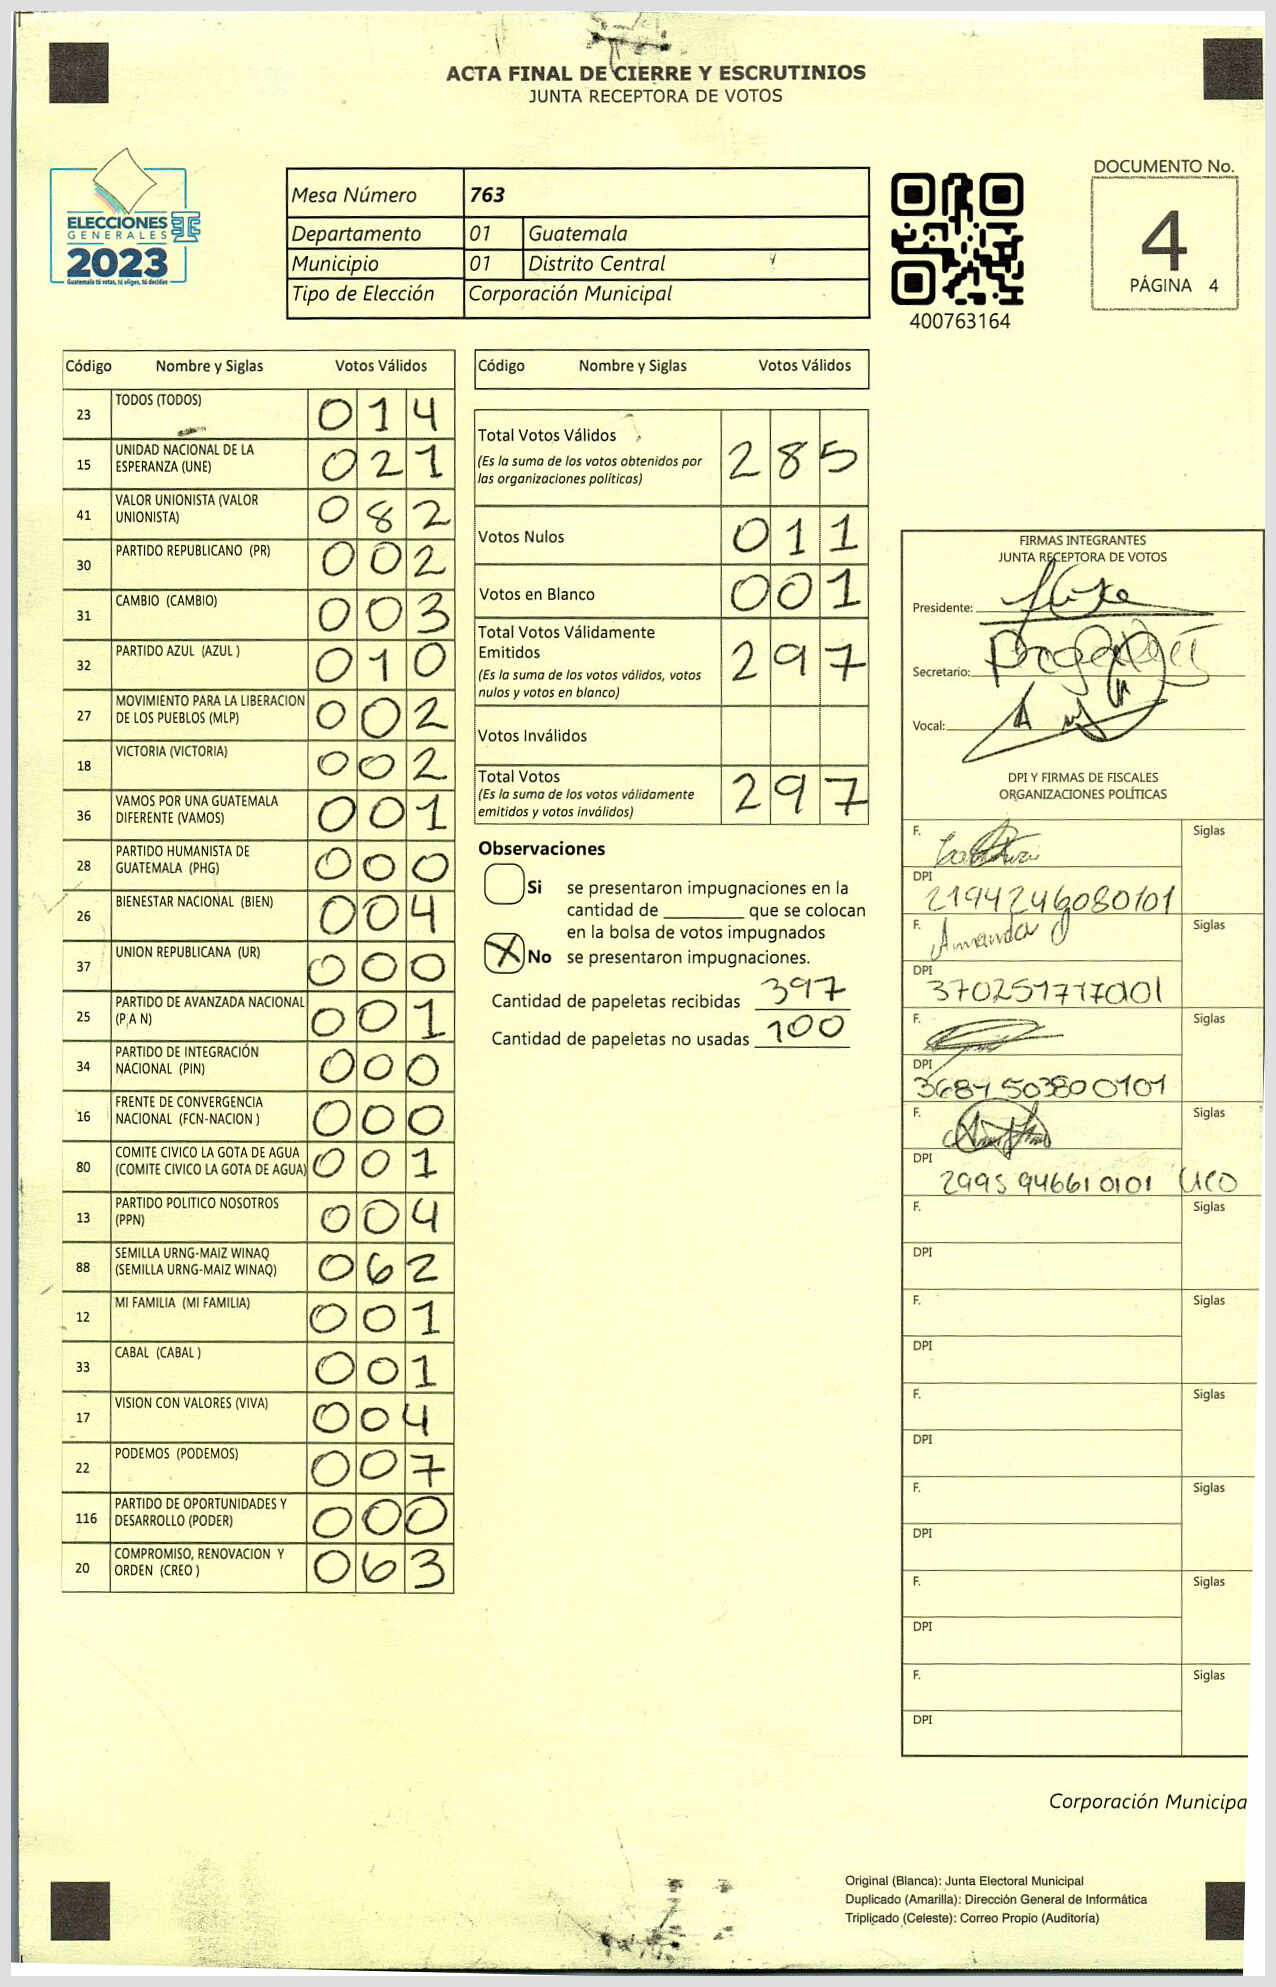 ACTA FINAL DE CIERRE Y ESCRUTINIOS
JUNTA RECEPTORA DE VOTOS
ELECCIONES
GENERALES
2023
Guatemala tú votas, tú eliges, tú decides
Mesa Número 763
Departamento 01 Guatemala
Municipio 01 Distrito Central
Tipo de Elección Corporación Municipal
400763164
DOCUMENTO No.
4
PÁGINA 4
Código Nombre y Siglas Votos Válidos
23 TODOS (TODOS) 014
15 UNIDAD NACIONAL DE LA ESPERANZA (UNE) 021
41 VALOR UNIONISTA (VALOR UNIONISTA) 082
30 PARTIDO REPUBLICANO (PR) 002
31 CAMBIO (CAMBIO) 003
32 PARTIDO AZUL (AZUL ) 010
27 MOVIMIENTO PARA LA LIBERACION DE LOS PUEBLOS (MLP) 002
18 VICTORIA (VICTORIA) 002
36 VAMOS POR UNA GUATEMALA DIFERENTE (VAMOS) 001
28 PARTIDO HUMANISTA DE GUATEMALA (PHG) 000
26 BIENESTAR NACIONAL (BIEN) 004
37 UNION REPUBLICANA (UR) 000
25 PARTIDO DE AVANZADA NACIONAL (P.A N) 001
34 PARTIDO DE INTEGRACIÓN NACIONAL (PIN) 000
16 FRENTE DE CONVERGENCIA NACIONAL (FCN-NACION ) 000
80 COMITE CIVICO LA GOTA DE AGUA (COMITE CIVICO LA GOTA DE AGUA) 001
13 PARTIDO POLITICO NOSOTROS (PPN) 004
88 SEMILLA URNG-MAIZ WINAQ (SEMILLA URNG-MAIZ WINAQ) 062
12 MI FAMILIA (MI FAMILIA) 001
33 CABAL (CABAL ) 001
17 VISION CON VALORES (VIVA) 004
22 PODEMOS (PODEMOS) 007
116 PARTIDO DE OPORTUNIDADES Y DESARROLLO (PODER) 000
20 COMPROMISO, RENOVACION Y ORDEN (CREO ) 063
Código Nombre y Siglas Votos Válidos
Total Votos Válidos 285
(Es la suma de los votos obtenidos por
las organizaciones políticas)
Votos Nulos 011
Votos en Blanco 001
Total Votos Válidamente
Emitidos 297
(Es la suma de los votos válidos, votos
nulos y votos en blanco)
Votos Inválidos
Total Votos 297
(Es la suma de los votos válidamente
emitidos y votos inválidos)
Observaciones
Si se presentaron impugnaciones en la
cantidad de ________ que se colocan
en la bolsa de votos impugnados
X No se presentaron impugnaciones.
Cantidad de papeletas recibidas 397
Cantidad de papeletas no usadas 100
FIRMAS INTEGRANTES
JUNTA RECEPTORA DE VOTOS
Presidente:
Secretario:
Vocal:
DPI Y FIRMAS DE FISCALES
ORGANIZACIONES POLÍTICAS
F. Siglas
DPI
2194246080101
F. Amanda Siglas
DPI
F. Siglas
DPI
F. Siglas
DPI
2995 94661 0101
F. Siglas
DPI
F. Siglas
DPI
F. Siglas
DPI
F. Siglas
DPI
F. Siglas
DPI
F. Siglas
DPI
Corporación Municipa
Original (Blanca): Junta Electoral Municipal
Duplicado (Amarilla): Dirección General de Informática
Triplicado (Celeste): Correo Propio (Auditoría)